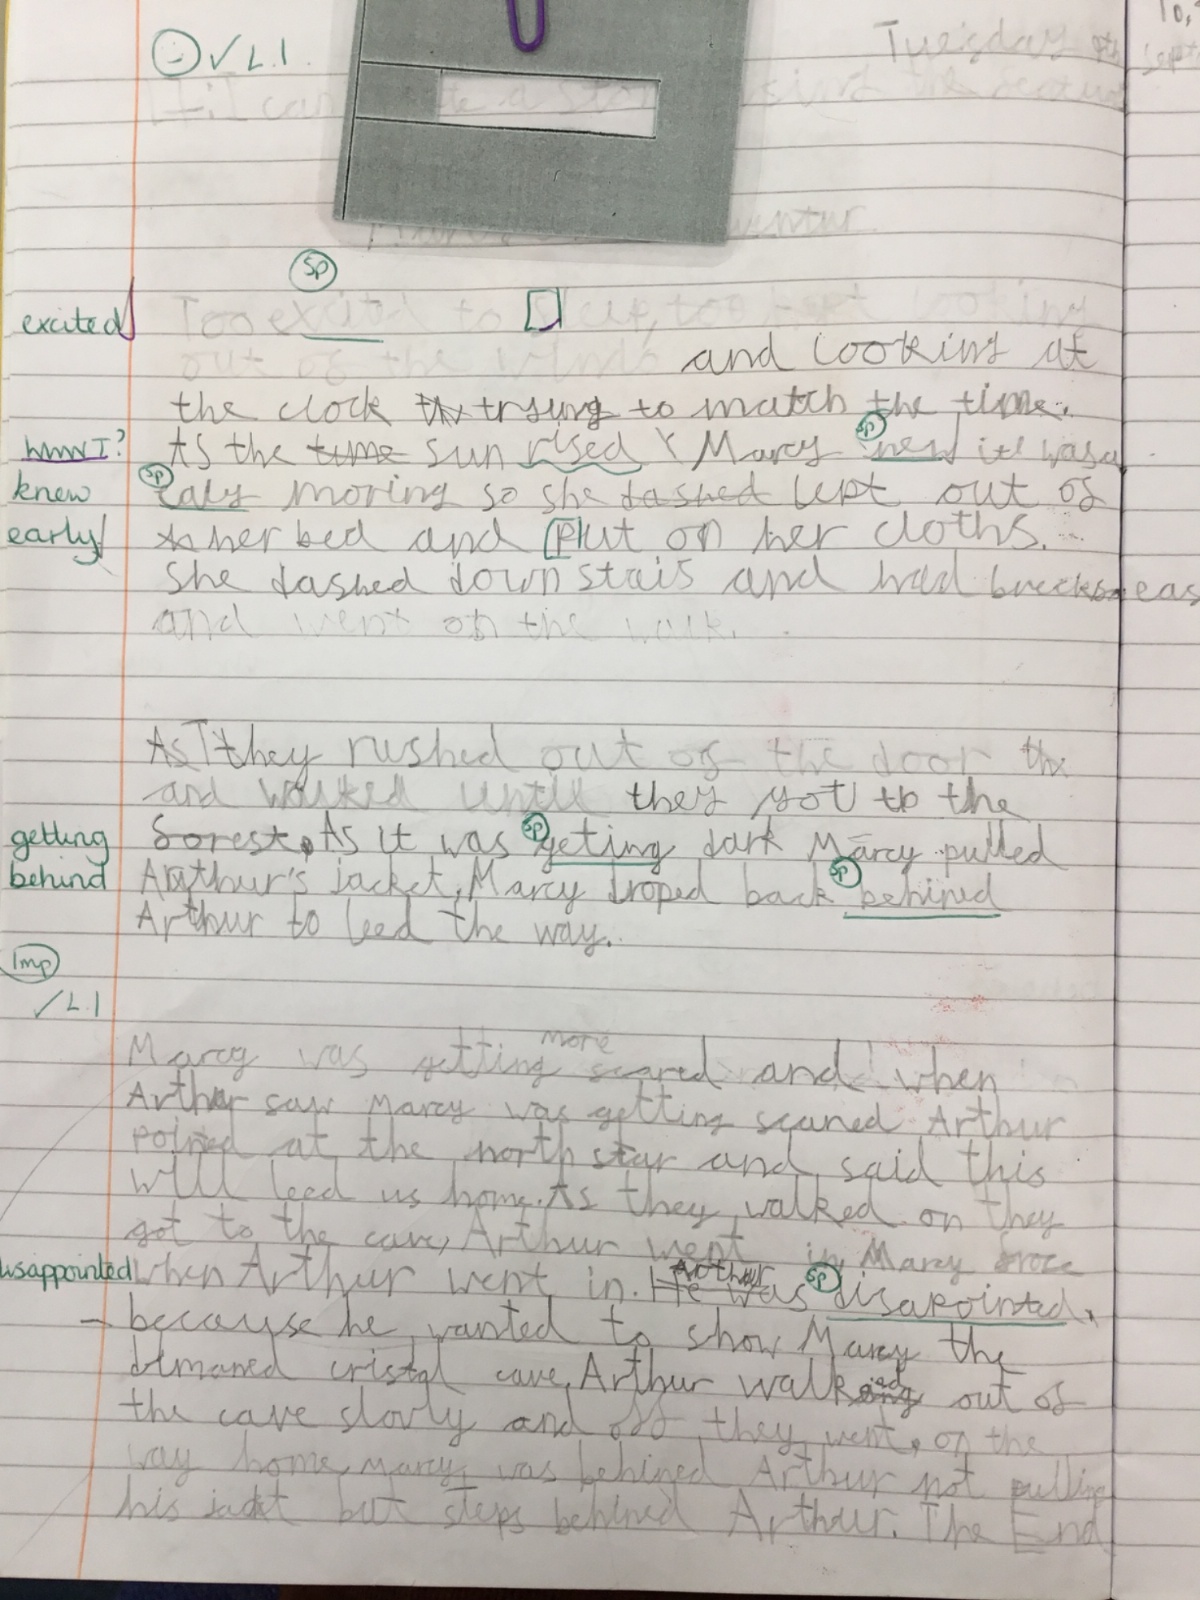 ✓ L.I.
Tuesday
sp
excited Too excitd to sleep, too kept looking
out of the and looking at
the clock trying to match the time.
As the time sun rised Marcy new it was a
sp
knew ealy moring so she dashed lept out of
early her bed and Put on her cloths.
she dashed down stais and had
and went on the walk.
As they rushed out of the door the
and walked until they got to the
getting forest. As it was geting dark Marcy pulled
sp
behind Arthur's jacket, Marcy droped back behined
sp
Arthur to leed the way.
Imp
✓ L.I
Marcy was getting more scared and when
Arthur saw Marcy was getting scared Arthur
poined at the north star and said this
will leed us home. As they walked on they
got to the cave, Arthur went in Marcy froze
when Arthur went in. He Arthur was disapointed.
sp
because he wanted to show Marcy the
dimaned cristal cave, Arthur walked out of
the cave slowly and off they went, on the
way home, marcy was behined Arthur not pulling
his jackt but steps behined Arthur. The End